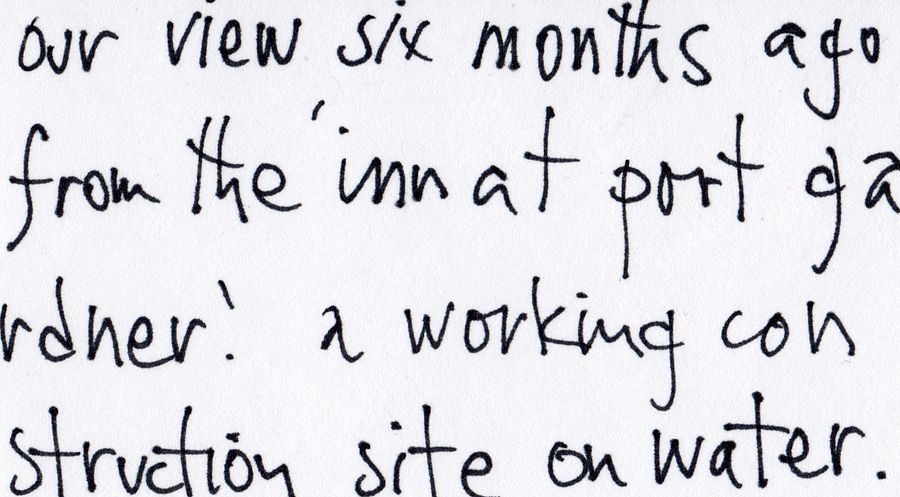 our view six months ago
from the 'inn at port ga
rdner'. a working con
struction site on water.